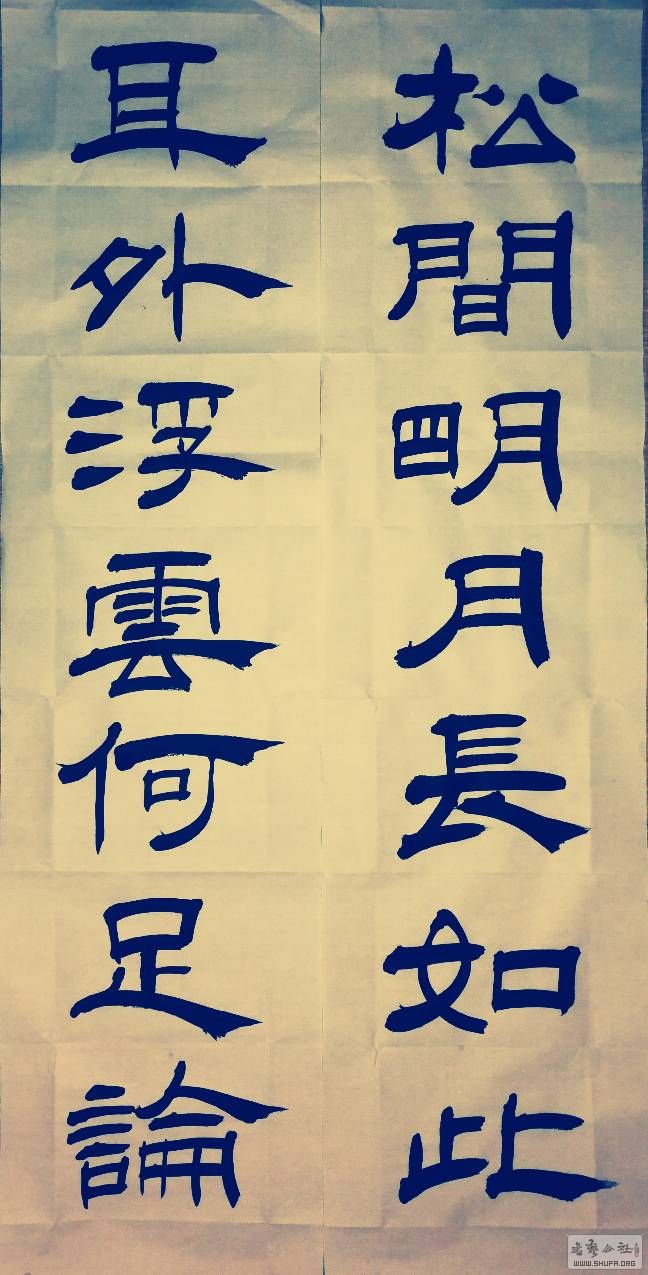 松間明月長如此
耳外浮雲何足論
书艺公社
WWW.SHUFA.ORG